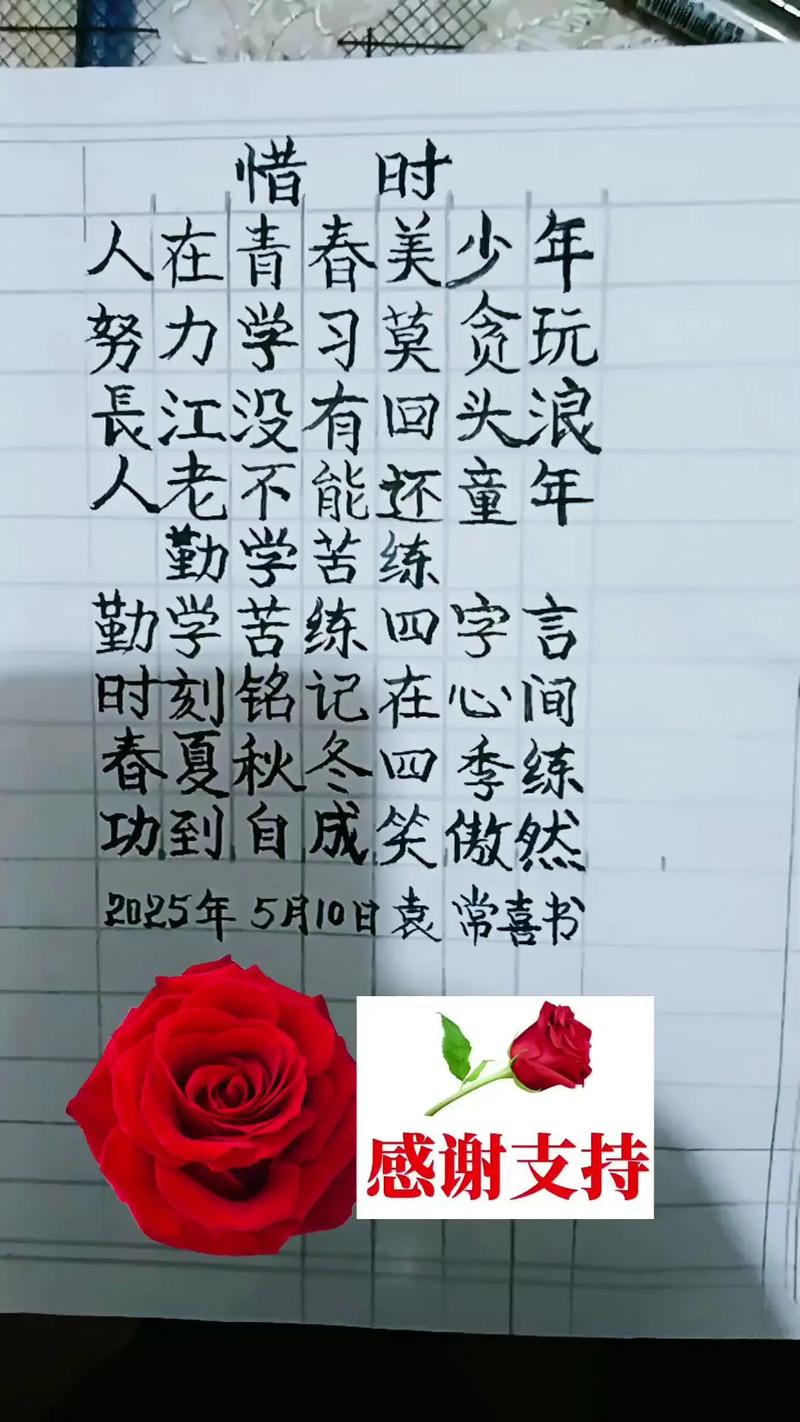 惜时
人在青春美少年
努力学习莫贪玩
長江没有回头浪
人老不能还童年
勤学苦练
勤学苦练四字言
时刻铭记在心间
春夏秋冬四季练
功到自成笑傲然
2025年5月10日袁常喜书
感谢支持